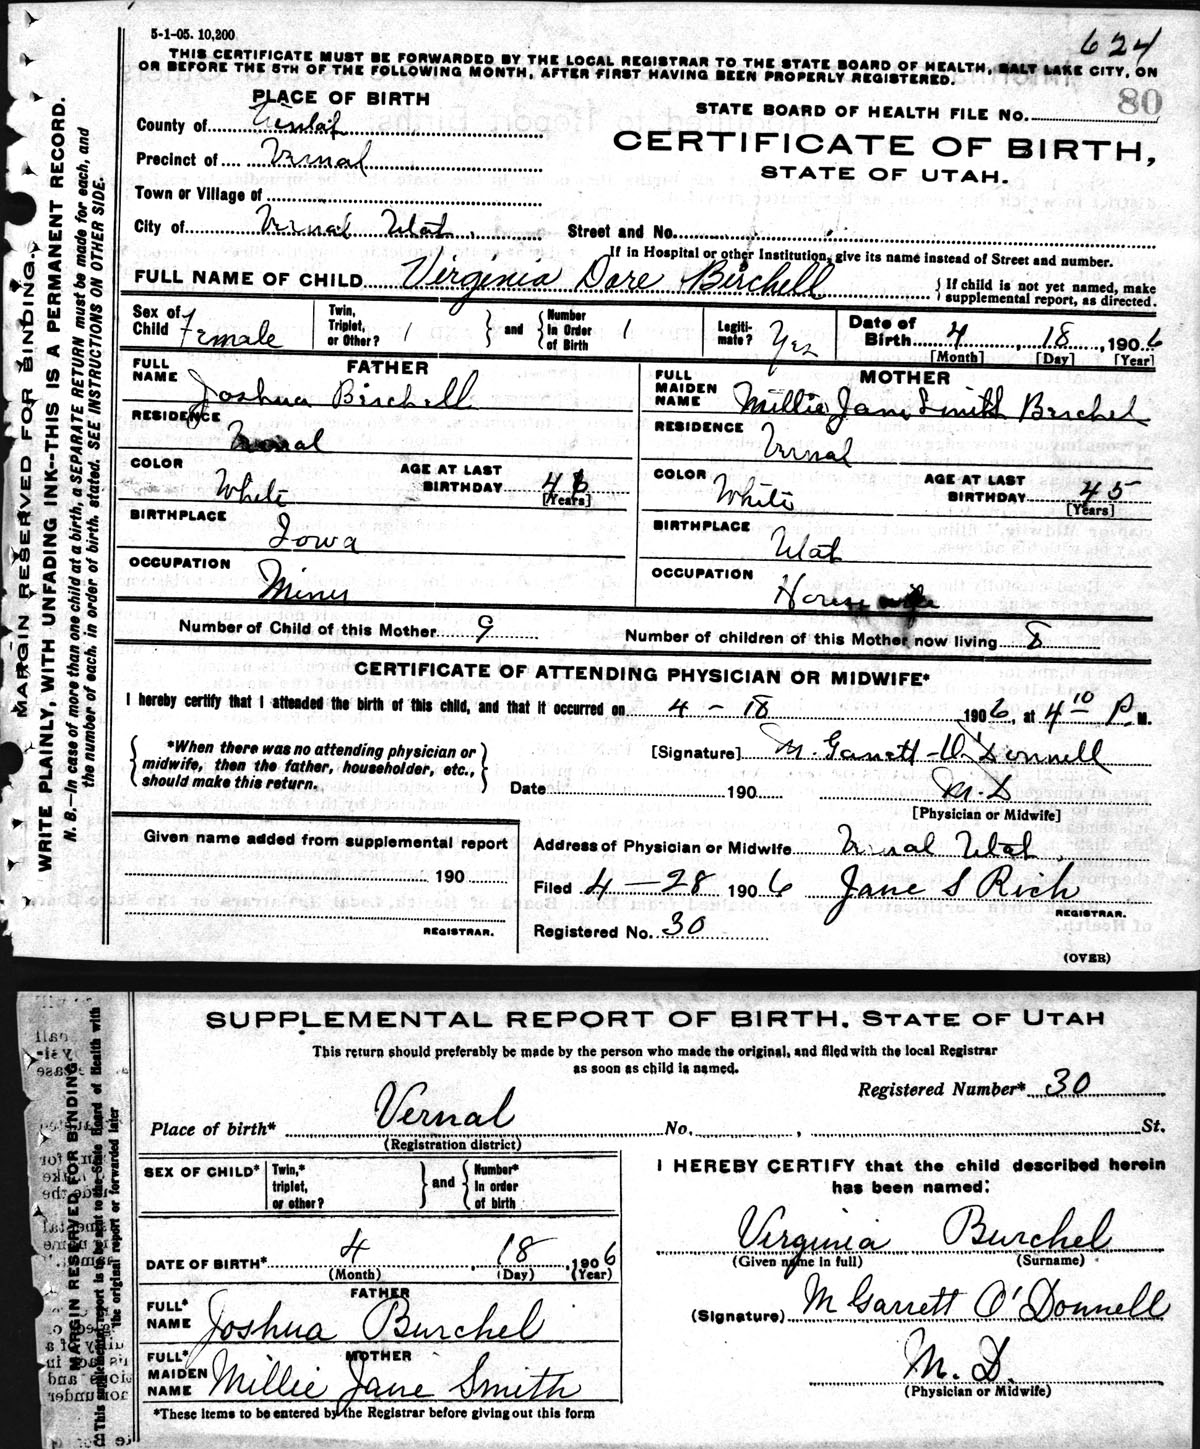 5-1-05. 10,200
624
THIS CERTIFICATE MUST BE FORWARDED BY THE LOCAL REGISTRAR TO THE STATE BOARD OF HEALTH, SALT LAKE CITY, ON
OR BEFORE THE 5TH OF THE FOLLOWING MONTH, AFTER FIRST HAVING BEEN PROPERLY REGISTERED.
PLACE OF BIRTH
STATE BOARD OF HEALTH FILE No. 80
County of
CERTIFICATE OF BIRTH,
STATE OF UTAH.
Precinct of Vernal
Town or Village of
City of Vernal Utah. Street and No.
If in Hospital or other Institution, give its name instead of Street and number.
FULL NAME OF CHILD Virginia Dare Birchell { If child is not yet named, make supplemental report, as directed.
Sex of Child Female Twin, Triplet, or Other? 1 } and { Number In Order of Birth 1 Legiti-mate? Yes Date of Birth 4, 18, 1906
[Month] [Day] [Year]
FATHER
FULL NAME Joshua Birchell
RESIDENCE Vernal
COLOR White AGE AT LAST BIRTHDAY 46
[Years]
BIRTHPLACE Iowa
OCCUPATION Miner
MOTHER
FULL MAIDEN NAME Millie Jane Smith Berchel
RESIDENCE Vernal
COLOR White AGE AT LAST BIRTHDAY 45
[Years]
BIRTHPLACE Utah
OCCUPATION Housewife
Number of Child of this Mother 9 Number of children of this Mother now living 8
CERTIFICATE OF ATTENDING PHYSICIAN OR MIDWIFE*
I hereby certify that I attended the birth of this child, and that it occurred on 4 - 18 1906, at 4 10 P.M.
{ *When there was no attending physician or
midwife, then the father, householder, etc.,
should make this return. }
[Signature] M. Garrett-O'Donnell
Date 190 M.D
[Physician or Midwife]
Given name added from supplemental report
190
REGISTRAR.
Address of Physician or Midwife Vernal Utah.
Filed 4-28 1906 Jane S Rich
REGISTRAR.
Registered No. 30
(OVER)
MARGIN RESERVED FOR BINDING.
WRITE PLAINLY, WITH UNFADING INK--THIS IS A PERMANENT RECORD.
N. B.—In case of more than one child at a birth, a SEPARATE RETURN must be made for each, and
the number of each, in order of birth, stated. SEE INSTRUCTIONS ON OTHER SIDE.
SUPPLEMENTAL REPORT OF BIRTH. STATE OF UTAH
This return should preferably be made by the person who made the original, and filed with the local Registrar
as soon as child is named.
Registered Number* 30
Place of birth* Vernal No. , St.
(Registration district)
SEX OF CHILD* Twin,* triplet, or other? } and { Number* In order of birth
DATE OF BIRTH* 4, 18, 1906
(Month) (Day) (Year)
FATHER
FULL* NAME Joshua Burchel
MOTHER
FULL* MAIDEN NAME Millie Jane Smith
*These items to be entered by the Registrar before giving out this form
I HEREBY CERTIFY that the child described herein
has been named:
Virginia Burchel
(Given name in full) (Surname)
(Signature) M Garrett O'Donnell
M.D.
(Physician or Midwife)
MARGIN RESERVED FOR BINDING
This supplemental report is to be sent to the State Board of Health with
the original report or forwarded later